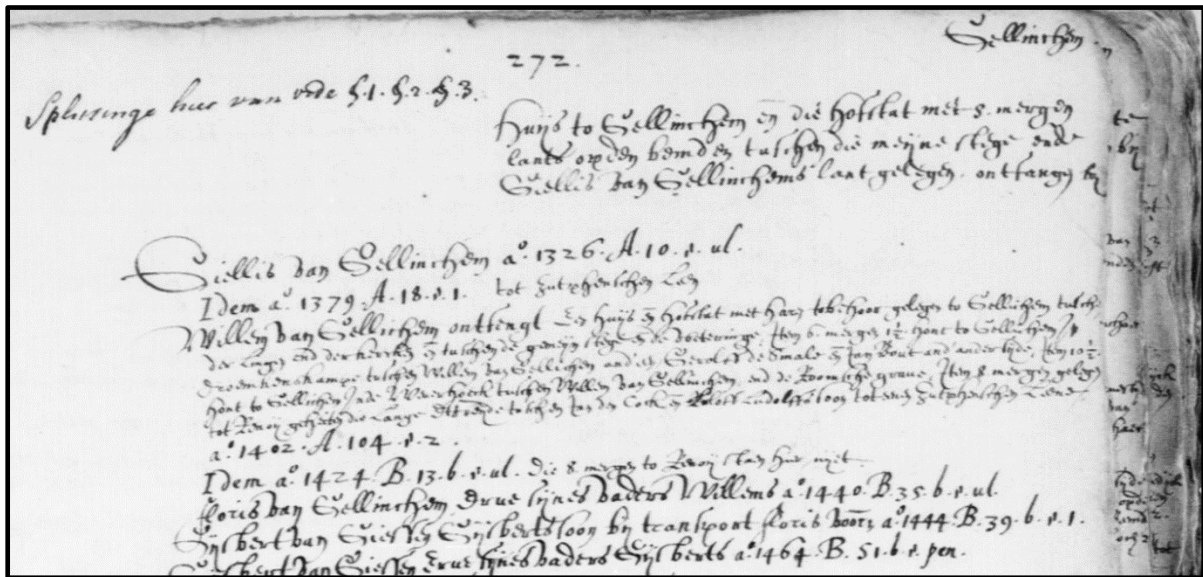 Gellinchem.
272.
Splitsinge hier van vide §.1. §.2. §.3.
Huijs to Gellinchem en die hofstat met 8. mergen
lants op den bemden tusschen die meijne stege ende
Giellis van Gellinchems lant gelegen. ontfangen
Giellis van Gellinchem a.º 1326. A. 10. e. ul.
Idem a.º 1379. A. 18. e. 1. tot Zutphenschen Leen
Willem van Gellichem ontfengt Een Huijs en Hofstat met haren tobehoor gelegen to Gellichem tusschen
der Lingen end der kercken en tusschen de gemeijn stege end de Voeteringe. Item 6. mergen 1½ hont to Gellichem
tusschen Willem van Gellichem and'een Gerolf de Smale en Jan Bout and'ander sijde. Item 10½
hont to Gellichem Jnde Weverhoeck tusschen Willem van Gellinchem end de Roomsche grave. Item 8 mergen gelegen
tot Renoij geheeten die Lange tusschen Jan die Cock en Roloff Ludolffssoon tot enen Zutphenschen Leene.
a.º 1402. A. 104. e. 2.
Idem a.º 1424. B. 13. b. e. ul. Die 8 mergen to Renoij staen hier niet.
Floris van Gellinchem Erve sijnes vaders Willems a.º 1440. B. 35. b. e. ul.
Gijsbert van Giessen Gijsbertssoon bij transport Floris voors. a.º 1444. B. 39. b. e. 1.
Gijsbert van Giessen Erve sijnes vaders Gijsberts a.º 1464. B. 51. b. e. pen.